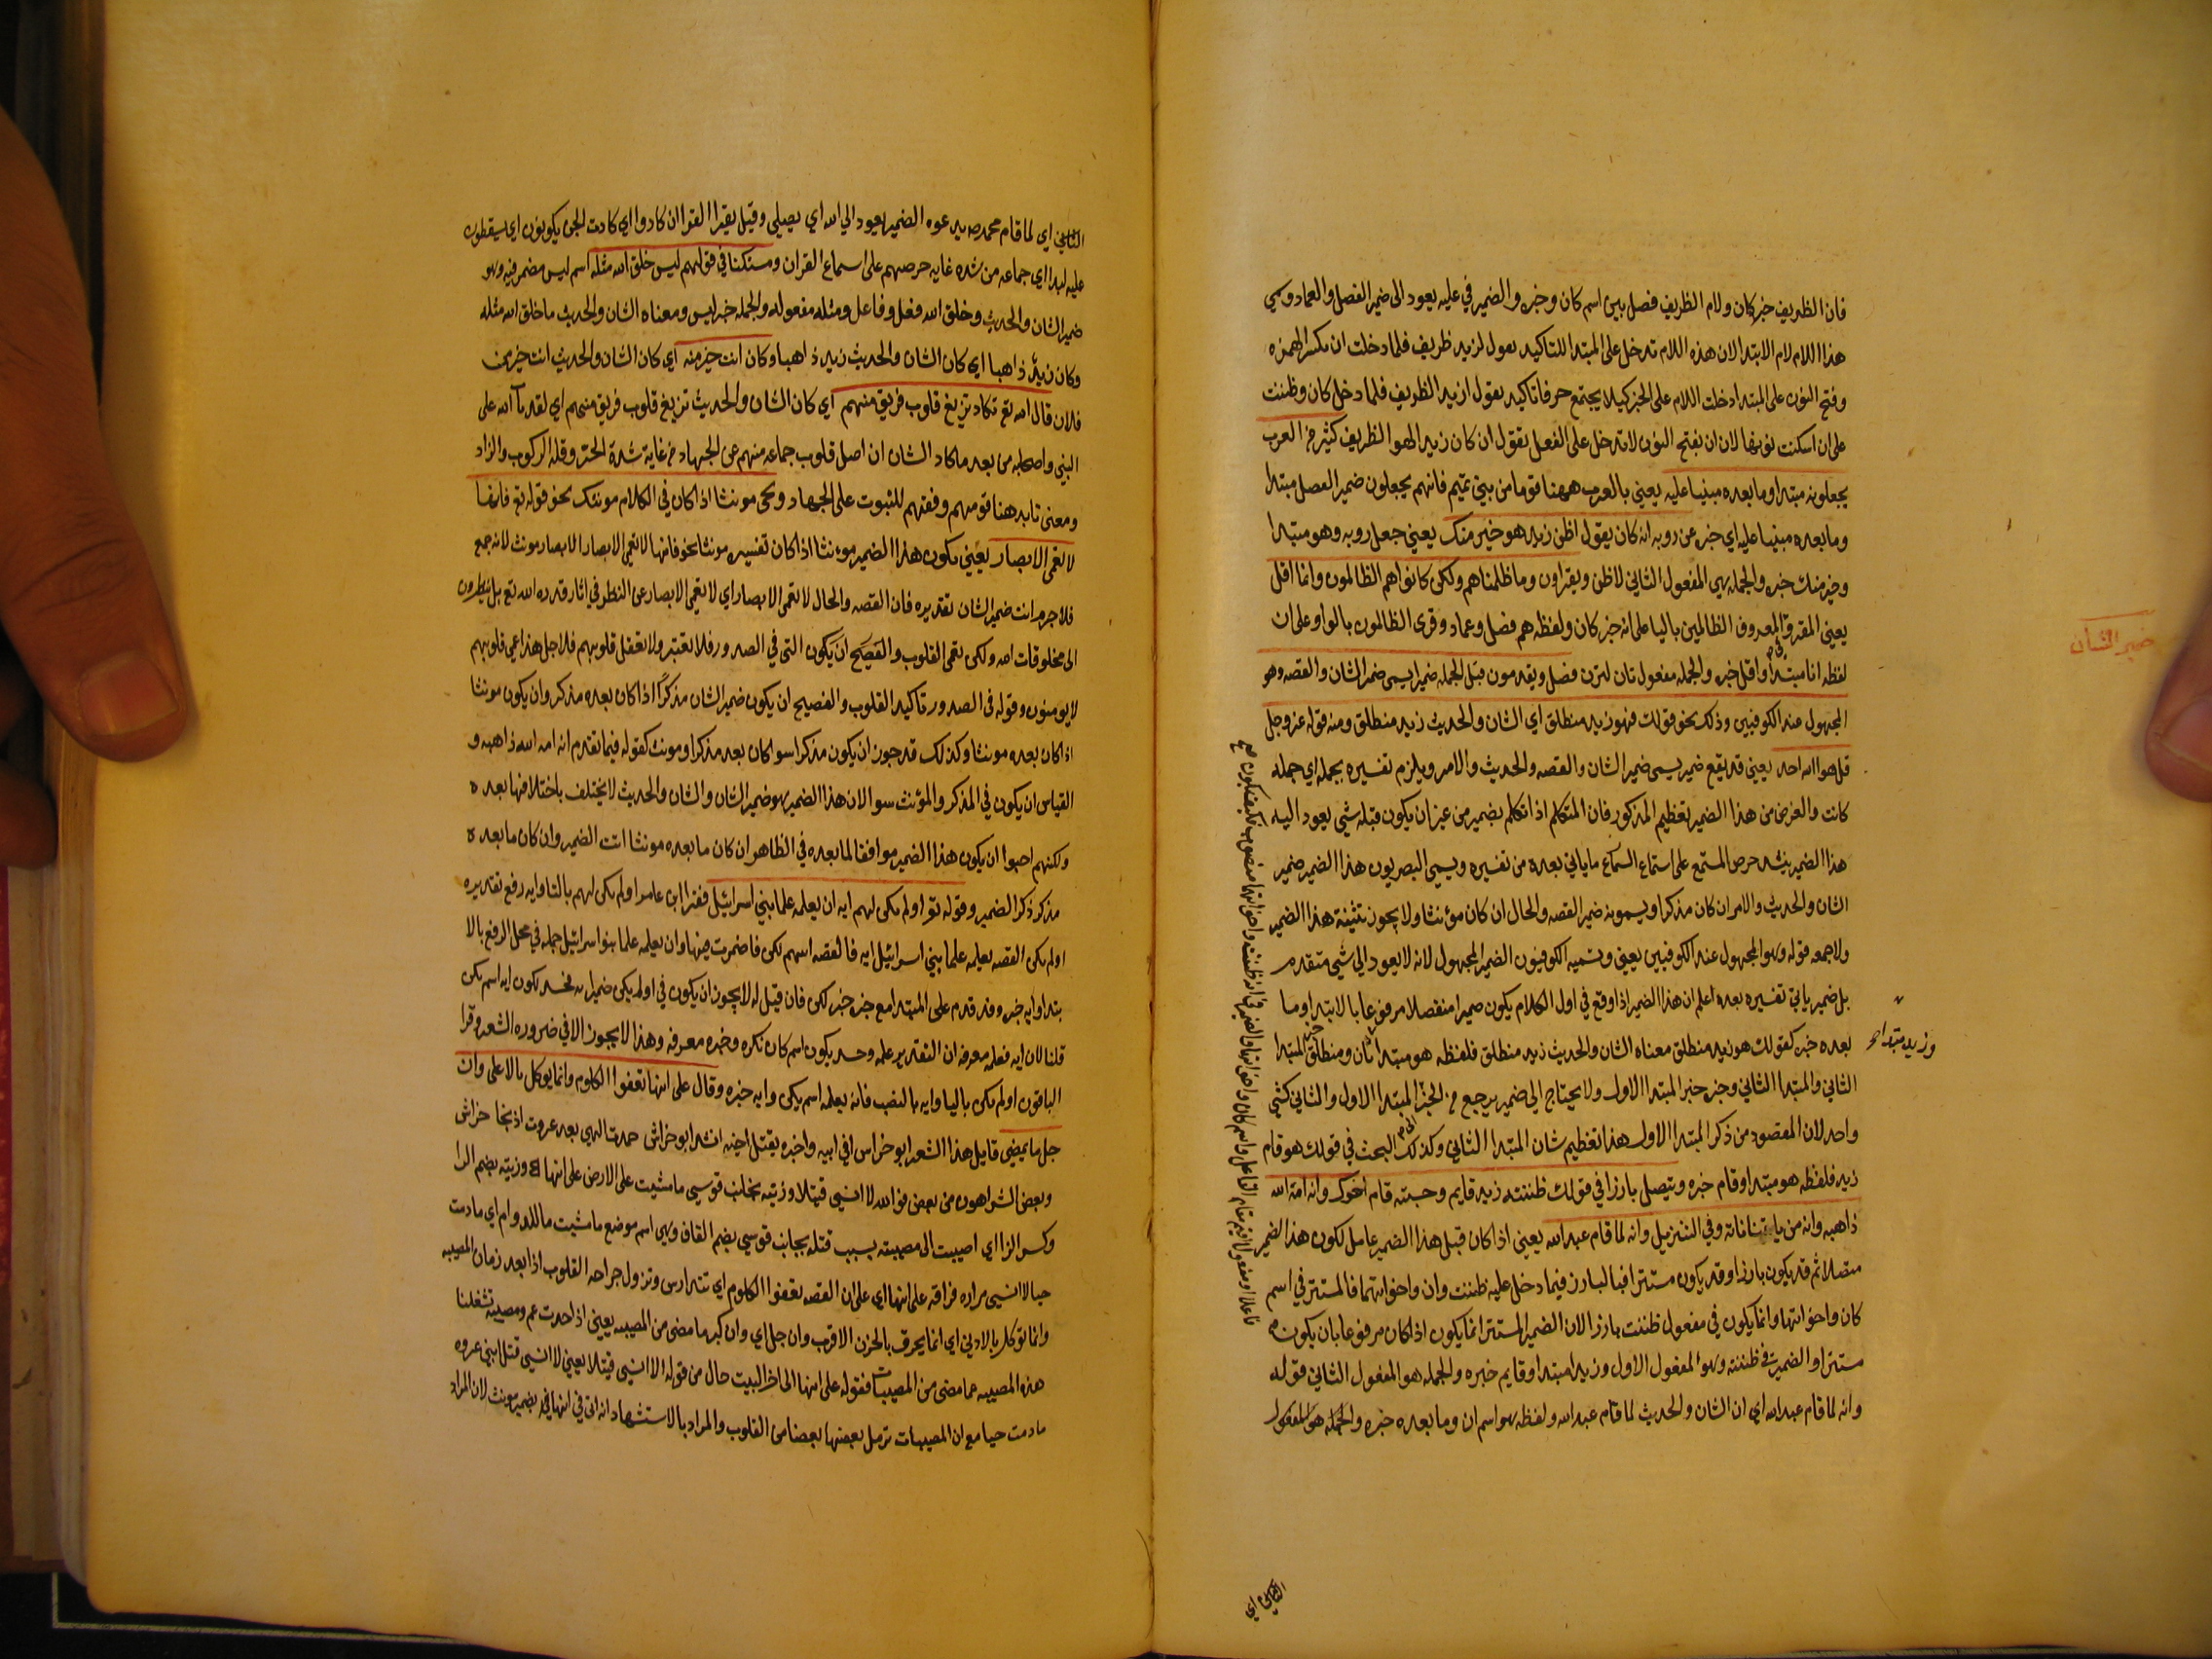 فان الظريف خبر كان ولام الظريف فصل بين اسم كان وخبره والضمير في عليه يعود الى ضمير الفصل والعماد وسمي
هذا اللام لام الابتدا لان هذه اللام تدخل على المبتدا للتاكيد يقول لزيد ظريف فلما دخلت ان بكسر الهمزه
وفتح النون على المبتدا دخلت اللام على الخبر كيلا يجتمع حرفا تاكيد يقول ان زيد الظريف فلما دخل كان وظننت
على ان اسكنت نونها لان ان بفتح النون لا تدخل على الفعل تقول ان كان زيد لهو الظريف كثير من العرب
يجعلونه مبتدا وما بعده مبنيا عليه يعني بالعرب ههنا قوما من بني تميم فانهم يجعلون ضمير الفصل مبتدا
وما بعده مبنيا عليه اي خبره عن روبه انه كان يقول اظن زيد هو خير منك يعني جعل روبه وهو مبتدا
وخير منك خبره والجمله هي المفعول الثاني لاظن ويقراون وما ظلمناهم ولكن كانوا هم الظالمون وانا اقل
يعني المقروّ المعروف الظالمين باليا على انه خبر كان ولفظه هم فصل وعماد وقرى الظالمون بالواو على ان
لفظه انا مبتدا واقل خبره والجمله مفعول ثان لترن فصل ويقدمون قبل الجمله ضميرا يسمى ضمير الشان والقصه وهو
المجهول عند الكوفيين وذلك نحو قولك فهو زيد منطلق اي الشان والحديث زيد منطلق ومنه قوله عز وجل
قل هو الله احد يعني قد يقع ضمير يسمى ضمير الشان والقصه والحديث والامر ويلزم تفسيره بجمله اي جمله
كانت والغرض من هذا الضمير تعظيم المذكور فان المتكلم اذا تكلم بضمير من غير ان يكون قبله شي يعود اليه
هذا الضمير يشد حرص المستمع على استماع ما ياتي بعده من تفسيره ويسمي البصريون هذا الضمير ضمير
الشان والحديث والامر ان كان مذكرا ويسمونه ضمير القصه والحال ان كان مؤنثا ولا يجوز تثنية هذا الضمير
ولا جمعه قوله وهو المجهول عند الكوفيين يعني وتسميه الكوفيون الضمير المجهول لانه لا يعود الى شي متقدم
بل ضمير ياتي تفسيره بعده اعلم ان هذا الضمير اذا وقع في اول الكلام يكون ضميرا منفصلا مرفوعا بالابتدا وما
بعده خبره كقولك هو زيد منطلق معناه الشان والحديث زيد منطلق فلفظه هو مبتدا ثان ومنطلق خبر المبتدا
وزيد مبتدا صح
الثاني والمبتدا الثاني وخبره خبر المبتدا الاول ولا يحتاج الى ضمير يرجع من الخبر الى المبتدا الاول والثاني كشي
واحد لان المقصود من ذكر المبتدا الاول هذا تعظيم شان المبتدا الثاني وكذلك البحث في قولك هو قام
زيد فلفظه هو مبتدا وقام خبره ويتصل بارزا في قولك ظننته زيد قايم وحسبته قام اخوك وانه امة الله
ذاهبه وانه من ياتنا ناته وفي التنزيل وانه لما قام عبد الله يعني اذا كان قبل هذا الضمير عامل لكون هذا الضمير
متصلا ثم قد يكون بارزا وقد يكون مستترا فالبارز فيما دخل عليه ظننت وان واخواتهما فالمستتر في اسم
كان واخواتها وانما يكون في مفعول ظننت بارزا لان الضمير المستتر انما يكون اذا كان مرفوعا بان يكون
مستترا والضمير في ظننته وهو المفعول الاول وزيد مبتدا وقايم خبره والجمله هو المفعول الثاني قوله
وانه لما قام عبد الله اي ان الشان والحديث لما قام عبد الله ولفظه هو اسم ان وما بعده خبره والجمله هو المفعول
ضمير الشان
الثاني اي
الثاني اي لما قام محمد يدعوه الضمير يعود الى الله اي يصيلي وقيل يقرا القران كادوا اي كادت الجن يكونون اي يسقطون
عليه لبدا اي جماعه من شده غايه حرصهم على اسماع القران ومستكنا في قولهم ليس خلق الله مثله اسم ليس مضمر فيه وهو
ضمير الشان والحديث وخلق الله فعل وفاعل ومثله مفعوله والجمله خبر ليس ومعناه الشان والحديث ما خلق الله مثله
وكان زيدٌ ذاهبا اي كان الشان والحديث زيد ذاهبا وكان انت خير منه اي كان الشان والحديث انت خير من
فلان قال الله تع تكاد تزيغ قلوب فريق منهم اي كان الشان والحديث تزيغ قلوب فريق منهم اي لقد تاب الله على
النبي واصحابه من بعد ما كاد الشان ان اصل قلوب جماعه منهم عن الجهاد من غاية شدة الحرّ وقلة الركوب والزاد
ومعنى تاب هنا قومهم وفقهم للثبوت على الجهاد ويجي مونثا اذا كان في الكلام مونث نحو قوله تع فانها
لا تعمى الابصار يعني يكون هذا الضمير مونثا اذا كان تفسيره مونثا نحو فانها لا تعمى الابصار الابصار مونث لانه جمع
فلا جرم انت ضمير الشان تقديره فان القصه والحال لا تعمى الابصار اي لا تعمى الابصار عن النظر في اثار قدره الله تع بل ينظرون
الى مخلوقات الله ولكن تعمى القلوب والفصيح ان يكون التي في الصدور فلا تعتبر ولا تعقل قلوبهم فلاجل هذا عمي قلوبهم
لا يومنون وقوله في الصدور تاكيد القلوب والفصيح ان يكون ضمير الشان مذكرا اذا كان بعده مذكر وان يكون مونثا
اذا كان بعده مونثا وكذلك قد جوز ان يكون مذكرا سوا كان بعد مذكر او مونث كقوله فيما تقدم انه امه الله ذاهبه و
القياس ان يكون في المذكر والمؤنث سوا لان هذا الضمير هو ضمير الشان والشان والحديث لا يختلف باختلاف ما بعده
ولكنهم احبوا ان يكون هذا الضمير موافقا لما بعده في الظاهر ان كان ما بعده مونثا انث الضمير وان كان ما بعده
مذكر ذكر الضمير وقوله تع اولم يكن لهم ايه ان يعلمه علما بني اسرائيل فقرا ابن عامر اولم تكن لهم بالتا وايه رفع تقديره
اولم تكن القصه يعلمه علما بني اسرائيل ايه فالقصه اسم تكن فاضمرت فيها وان يعلمه علما بنو اسرائيل جمله في محل الرفع بالا
بتدا وايه خبره وقد قدم على المبتدا مع خبره خبر تكن فان قيل له لا يجوز ان يكون في اولم يكن ضمير تكون ايه اسم يكن
قلنا لان ايه فعله معرفه ان التقدير علمه وحد يكون اسم كان نكره وخبره معرفه وهذا لا يجوز الا في ضروره الشعر وقرا
الباقون اولم يكن باليا وايه بالنصب فانه يعلمه اسم يكن وايه خبره وقال على انها تعفوا الكلوم وانما يوكل بالاعلى وان
جل ما يمضى قايل هذا الشعر ابو خراس في ابيه واخبره بقتل اخيه انشد ابو خراش حمدت الهي بعد عروت اذ نجا خراش
وبعض الشر اهون من بعض فوالله لا انسى قتيلا رزيته بجانب قوسي ما مشيت على الارض على انها رزيته بضم الرا
وكسر الزا اي اصيبت الى مصيبته بسبب قتله بجانب قوسي بضم القاف وهي اسم موضع ما مشيت ما للدوام اي ما دمت
حيا لا انسى مراده فراقه على انها اي على ان القصه تعفوا الكلوم اي تتدارس وتزول جراحه القلوب اذا بعد زمان المصيبه
وانما توكل بالادنى اي انما يحرق بالحزن الاقرب وان جل اي وان كبر ما مضى من المصيبه يعني اذا حدث غم ومصيبه تشغلنا
هذه المصيبه عما مضى من المصيبات فقوله على انها الى اخر البيت حال من قوله لا انسى قتيلا يعني لا انسى قتل ابني عروه
ما دمت حيا مع ان المصيبات تزيل بعضها بعضا من القلوب والمراد بالاستشهاد انه اتى في انها بضمير مونث لان المراد